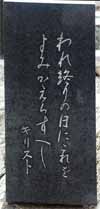 われ終りの日にこれを
よみがへらすべし
キリスト